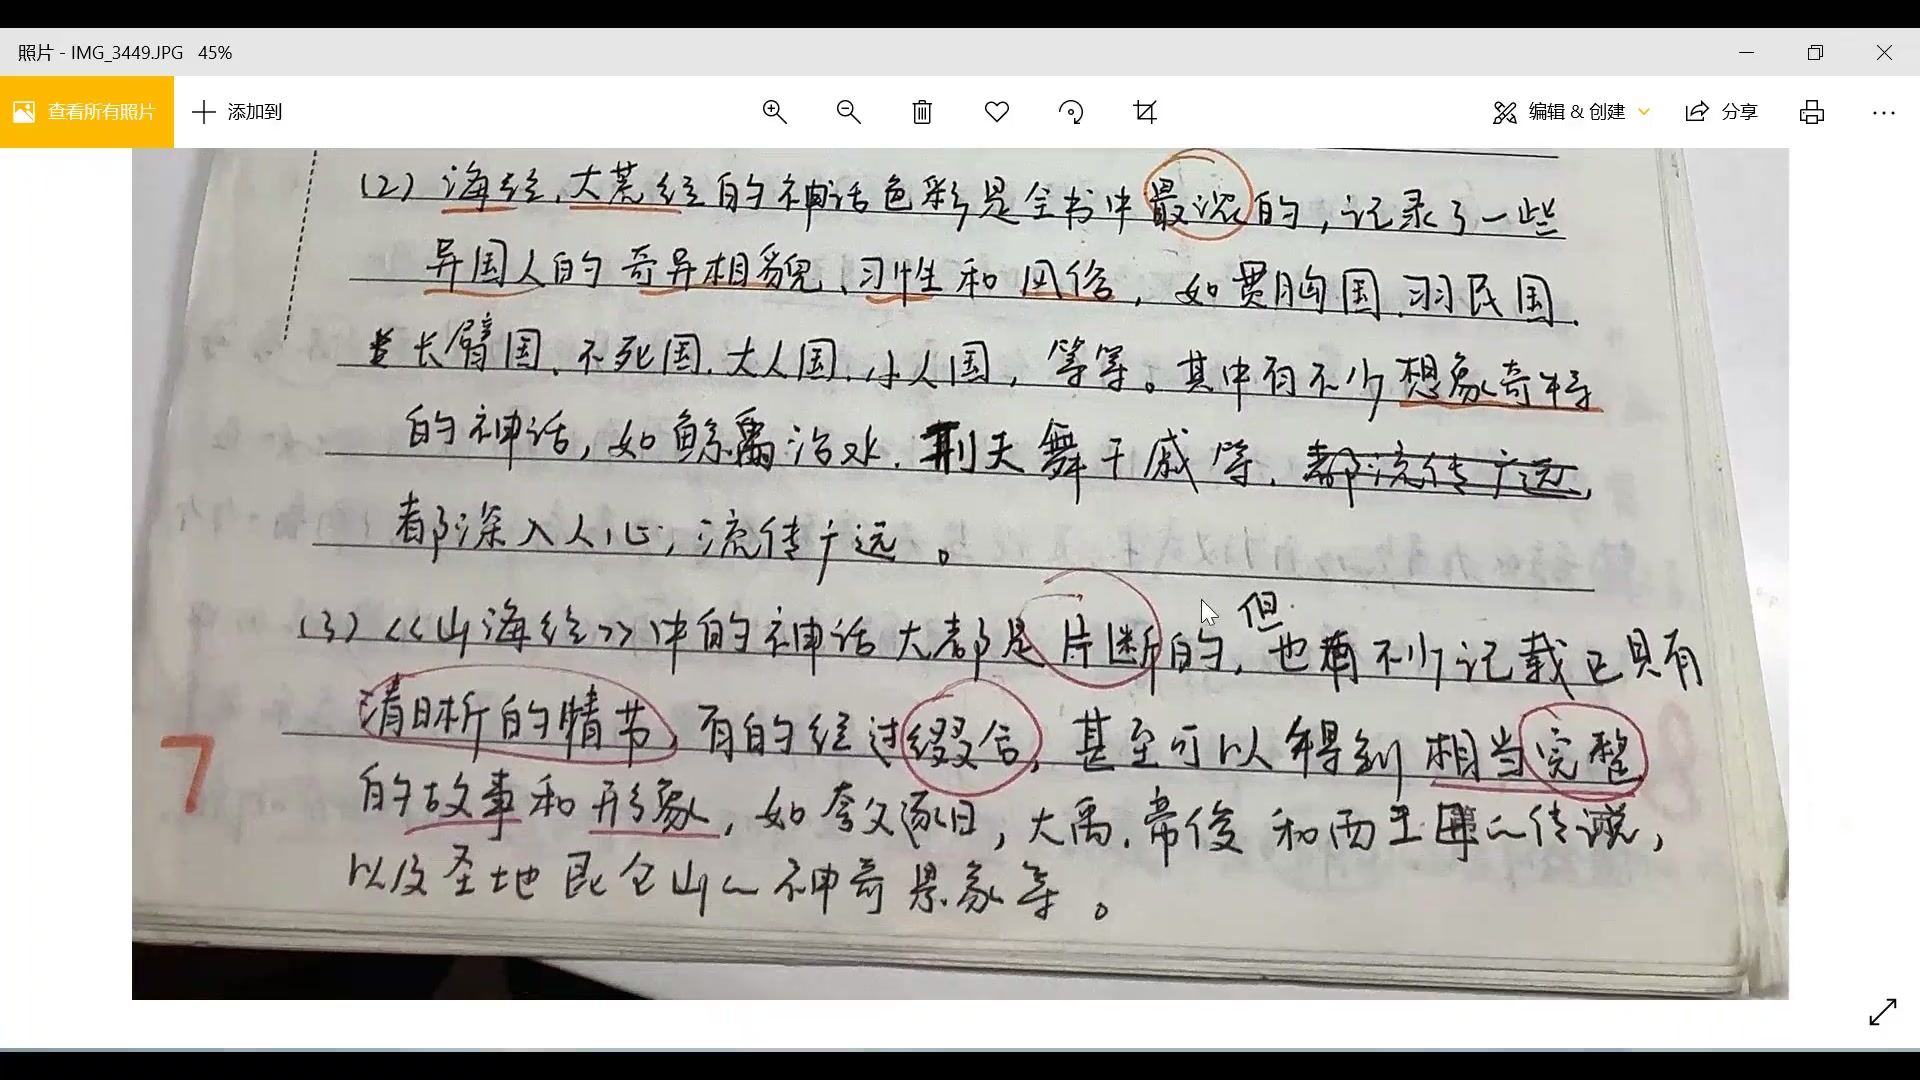 照片 - IMG_3449.JPG 45%
查看所有照片 添加到 编辑 & 创建 分享
(2) 海经、大荒经的神话色彩是全书中最浓的，记录了一些
异国人的奇异相貌、习性和风俗，如贯胸国、羽民国、
长臂国、不死国、大人国、小人国，等等。其中有不少想象奇特
的神话，如鲧禹治水、刑天舞干戚等，都流传广远，
都深入人心，流传广远。
但
(3)《山海经》中的神话大都是片断的，也有不少记载已具有
清晰的情节，有的经过缀合，甚至可以得到相当完整
的故事和形象，如夸父逐日，大禹、帝俊和西王母的传说，
以及圣地昆仑山的神奇景象等。
7